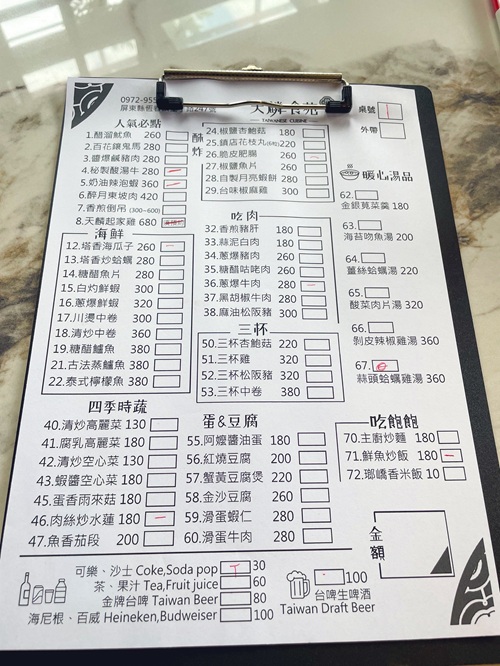 0972-955
屏東縣恆
天麟食苑
TAIWANESE CUISINE
桌號
外帶
人氣必點
1.醋溜魷魚 260
2.百花鑲鬼馬 280
3.醬爆鹹豬肉 280
4.秘製酸湯牛 280
5.奶油辣泡蝦 360
6.醉月東坡肉 420
7.香煎倒吊 (300~600)
8.天麟起家雞 680
海鮮
12.塔香海瓜子 260
13.塔香炒蛤蠣 280
14.糖醋魚片 280
15.白灼鮮蝦 300
16.蔥爆鮮蝦 320
17.川燙中卷 300
18.清炒中卷 360
19.糖醋鱸魚 380
21.古法蒸鱸魚 380
22.泰式檸檬魚 380
酥炸
24.椒鹽杏鮑菇 180
25.鎮店花枝丸(6粒) 220
26.脆皮肥腸 260
27.椒鹽魚片 260
28.自製月亮蝦餅 280
29.台味椒麻雞 300
吃肉
32.香煎豬肝 180
33.蒜泥白肉 180
34.蔥爆豬肉 260
35.糖醋咕咾肉 260
36.蔥爆牛肉 280
37.黑胡椒牛肉 280
38.麻油松阪豬 320
三杯
50.三杯杏鮑菇 220
51.三杯雞 320
52.三杯松阪豬 320
53.三杯中卷 380
暖心湯品
62.
金銀莧菜羹 180
63.
海苔吻魚湯 200
64.
薑絲蛤蠣湯 220
65.
酸菜肉片湯 320
66.
剝皮辣椒雞湯 360
67.
蒜頭蛤蠣雞湯 360
四季時蔬
40.清炒高麗菜 130
41.腐乳高麗菜 180
42.清炒空心菜 130
43.蝦醬空心菜 180
45.蛋香雨來菇 180
46.肉絲炒水蓮 180
47.魚香茄段 200
蛋&豆腐
55.阿嬤醬油蛋 180
56.紅燒豆腐 200
57.蟹黃豆腐煲 220
58.金沙豆腐 260
59.滑蛋蝦仁 280
60.滑蛋牛肉 280
吃飽飽
70.主廚炒麵 180
71.鮮魚炒飯 180
72.瑯嶠香米飯 10
金額
可樂、沙士 Coke,Soda pop 30
茶、果汁 Tea,Fruit juice 60
金牌台啤 Taiwan Beer 80
海尼根、百威 Heineken,Budweiser 100
100
台啤生啤酒
Taiwan Draft Beer